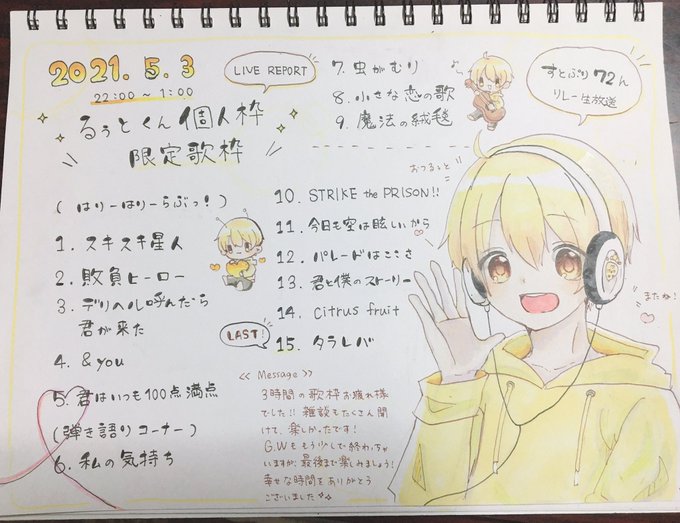 2021. 5. 3
22:00 ~ 1:00
LIVE REPORT
るぅとくん 個人枠
限定歌枠
( はりーはりーらぶっ! )
1. スキスキ星人
2. 敗負ヒーロー
3. デリヘル呼んだら
君が来た
4. & you
5. 君はいつも100点満点
(弾き語りコーナー)
6. 私の気持ち
7. 虫がむり
8. 小さな恋の歌
9. 魔法の絨毯
すとぷり 72h
リレー生放送
おつるぅと
10. STRIKE the PRISON!!
11. 今日も空は眩しいから
12. パレードはここさ
13. 君と僕のストーリー
14. Citrus fruit
LAST!
15. タラレバ
またね!
<< Message >>
3時間の歌枠お疲れ様
でした!! 雑談もたくさん聞
けて、楽しかったです!
G.Wももう少しで終わっちゃ
いますが、最後まで楽しみましょう!
幸せな時間をありがとう
ございました